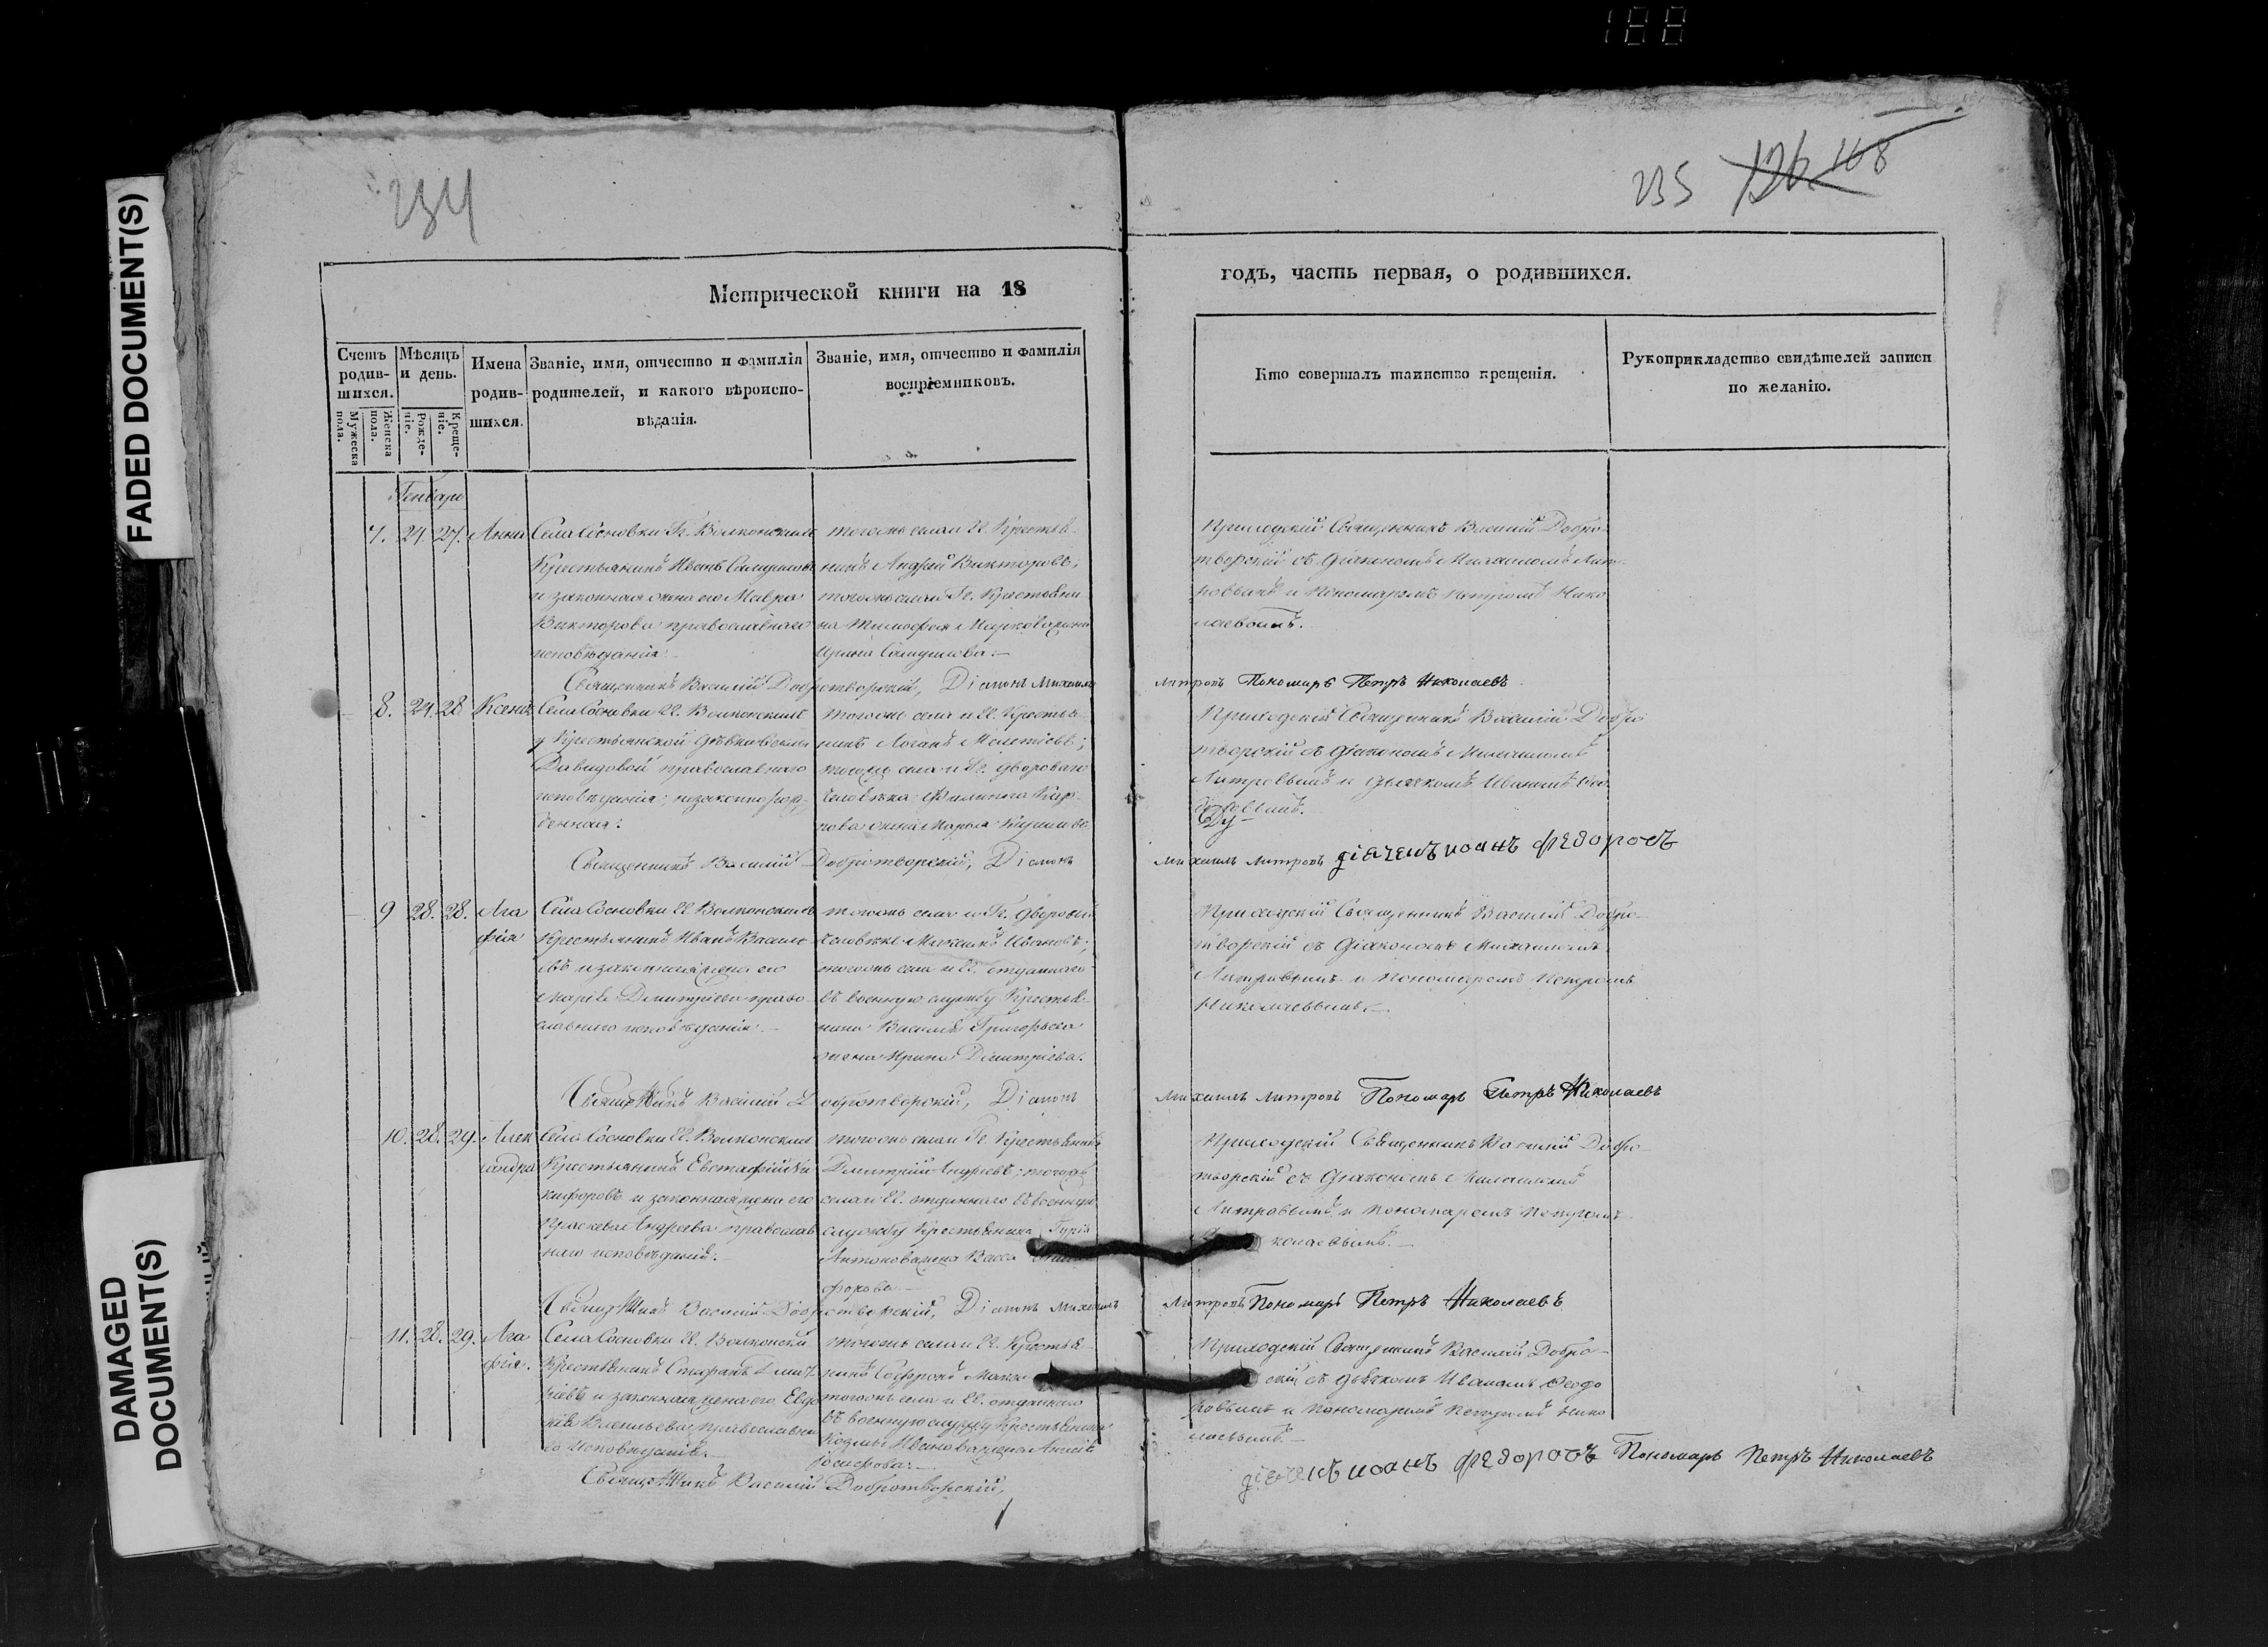 188
FADED DOCUMENT(S)
DAMAGED
DOCUMENT(S)
234
235 126 168
Метрической книги на 18
годъ, часть первая, о родившихся.
Счетъ родив-шихся.
Мужеска пола.
Женска пола.
Мѣсяцъ и день.
Рожде-ніе.
Креще-ніе.
Имена родив-шихся.
Званіе, имя, отчество и фамилія родителей, и какого вѣроиспо-вѣданія.
Званіе, имя, отчество и фамилія воспріемниковъ.
Кто совершалъ таинство крещенія.
Рукоприкладство свидѣтелей записи по желанію.
Генварь
7. 24. 27. Анна
Села Сосновки Гг. Волконскихъ
Крестьянинъ Иванъ Самуиловъ
и законная жена его Мавра
Викторова православнаго
исповѣданія.
тогожъ села и Гг. Крестья-
нинъ Андрей Викторовъ;
тогожъ села и Гг. Крестьяни-
на Тимофея Маркова жена
Ирина Самуилова.
Приходскій Священникъ Василій Добро-
творскій съ Діакономъ Михаиломъ Лит-
ровымъ и Пономаремъ Петромъ Нико
лаевымъ.
Священникъ Василій Добротворскій, Діаконъ Михаилъ Литровъ Пономарь Петръ Николаевъ
8. 24. 28 Ксенія
Села Сосновки Гг. Волконскихъ
у Крестьянской дѣвки
Давидовой православнаго
исповѣданія; незаконнорож-
денная.
тогожъ села и Гг. Крестья-
нинъ Мелетіевъ;
тогожъ села и Гг. двороваго
человѣка Филиппа Кар-
пова жена Марья
Приходскій Священникъ Василій Добро
творскій съ Діакономъ Михаиломъ
Литровымъ и Дьячкомъ Иваномъ Ѳео
доровымъ.
Священникъ Василій Добротворскій, Діаконъ Михаилъ Литровъ діячекъ иоанъ федоровъ
9 28. 28. Ага
фія
Села Сосновки Гг. Волконскихъ
Крестьянинъ Иванъ Василь-
евъ и законная жена его
Марія Димитріева право-
славнаго исповѣданія.
тогожъ села и Гг. дворовый
человѣкъ Максимъ Ивановъ;
тогожъ села и Гг. отданнаго
въ военную службу Крестья-
нина Василья Григорьева
жена Ирина Димитріева.
Приходскій Священникъ Василій Добро-
творскій съ Діакономъ Михаиломъ
Литровымъ и Пономаремъ Петромъ
Николаевымъ.
Священникъ Василій Добротворскій, Діаконъ Михаилъ Литровъ Пономарь Петръ Николаевъ
10. 28. 29. Алек
сандра
Села Сосновки Гг. Волконскихъ
Крестьянинъ Евстафій Ни
кифоровъ и законная жена его
Праскева Андреева православ
наго исповѣданія.
тогожъ села и Гг. Крестьянинъ
Димитрій Андреевъ; тогожъ
села и Гг. отданнаго въ военную
службу Крестьянина Гурія
Антонова жена Васса
Приходскій Священникъ Василій Добро-
творскій съ Діакономъ Михаиломъ
Литровымъ и Пономаремъ Петромъ
колаевымъ.
Священникъ Василій Добротворскій, Діаконъ Михаилъ Литровъ Пономарь Петръ Николаевъ
11. 28. 29. Ага
фія.
Села Сосновки Гг. Волконскихъ
Крестьянинъ Стефанъ Димит
ріевъ и законная жена его Евдо
кія Васильева православна
го исповѣданія.
тогожъ села и Гг. Крестья-
нинъ Софронъ
тогожъ села и Гг. отданнаго
въ военную службу Крестьянина
Козмы Иванова жена
Іосифова.
Приходскій Священникъ Василій Добро-
скій съ дьячкомъ Иваномъ Ѳеодо
ровымъ и Пономаремъ Петромъ Нико
лаевымъ.
Священникъ Василій Добротворскій, діячекъ иоанъ федоровъ Пономарь Петръ Николаевъ